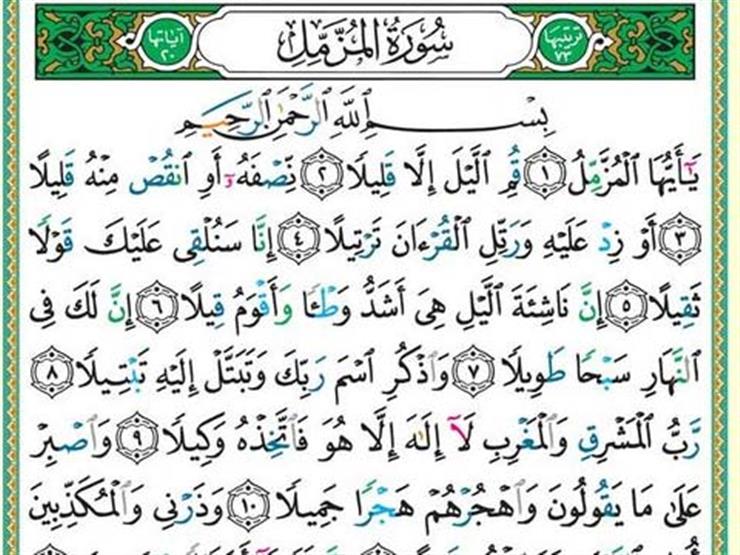 ترتيبها ٧٣ سُورَةُ المُزَّمِّلِ آياتها ٢٠
بِسْمِ ٱللَّهِ ٱلرَّحْمَٰنِ ٱلرَّحِيمِ
يَٰٓأَيُّهَا ٱلْمُزَّمِّلُ ١ قُمِ ٱلَّيْلَ إِلَّا قَلِيلًا ٢ نِّصْفَهُۥٓ أَوِ ٱنقُصْ مِنْهُ قَلِيلًا
٣ أَوْ زِدْ عَلَيْهِ وَرَتِّلِ ٱلْقُرْءَانَ تَرْتِيلًا ٤ إِنَّا سَنُلْقِى عَلَيْكَ قَوْلًا
ثَقِيلًا ٥ إِنَّ نَاشِئَةَ ٱلَّيْلِ هِىَ أَشَدُّ وَطْـًٔا وَأَقْوَمُ قِيلًا ٦ إِنَّ لَكَ فِى
ٱلنَّهَارِ سَبْحًا طَوِيلًا ٧ وَٱذْكُرِ ٱسْمَ رَبِّكَ وَتَبَتَّلْ إِلَيْهِ تَبْتِيلًا ٨
رَّبُّ ٱلْمَشْرِقِ وَٱلْمَغْرِبِ لَآ إِلَٰهَ إِلَّا هُوَ فَٱتَّخِذْهُ وَكِيلًا ٩ وَٱصْبِرْ
عَلَىٰ مَا يَقُولُونَ وَٱهْجُرْهُمْ هَجْرًا جَمِيلًا ١٠ وَذَرْنِى وَٱلْمُكَذِّبِينَ